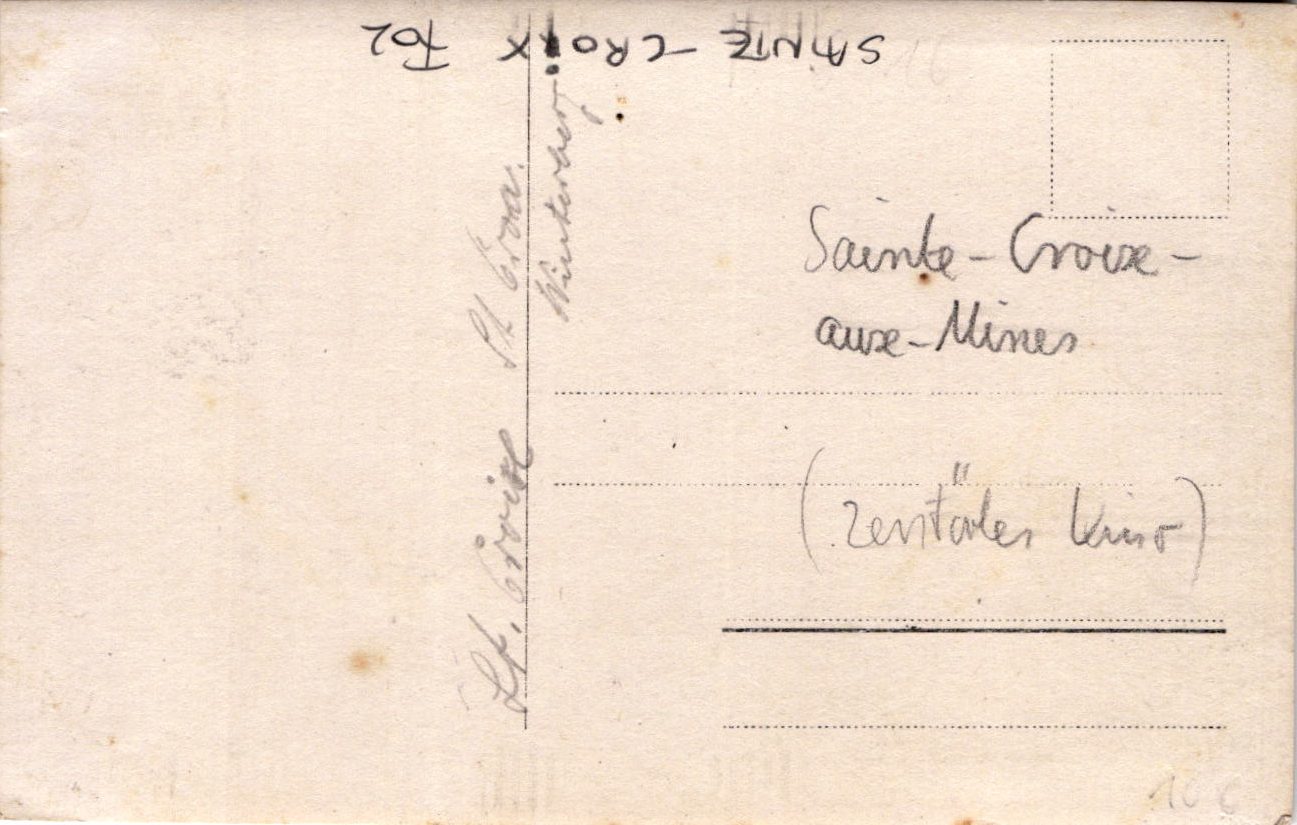 SAINTE-CROIX FOL
Sainte-Croix-
aux-Mines
(zerstörtes Kino)
St. Croix St. Croix.
Winterberg
10 €